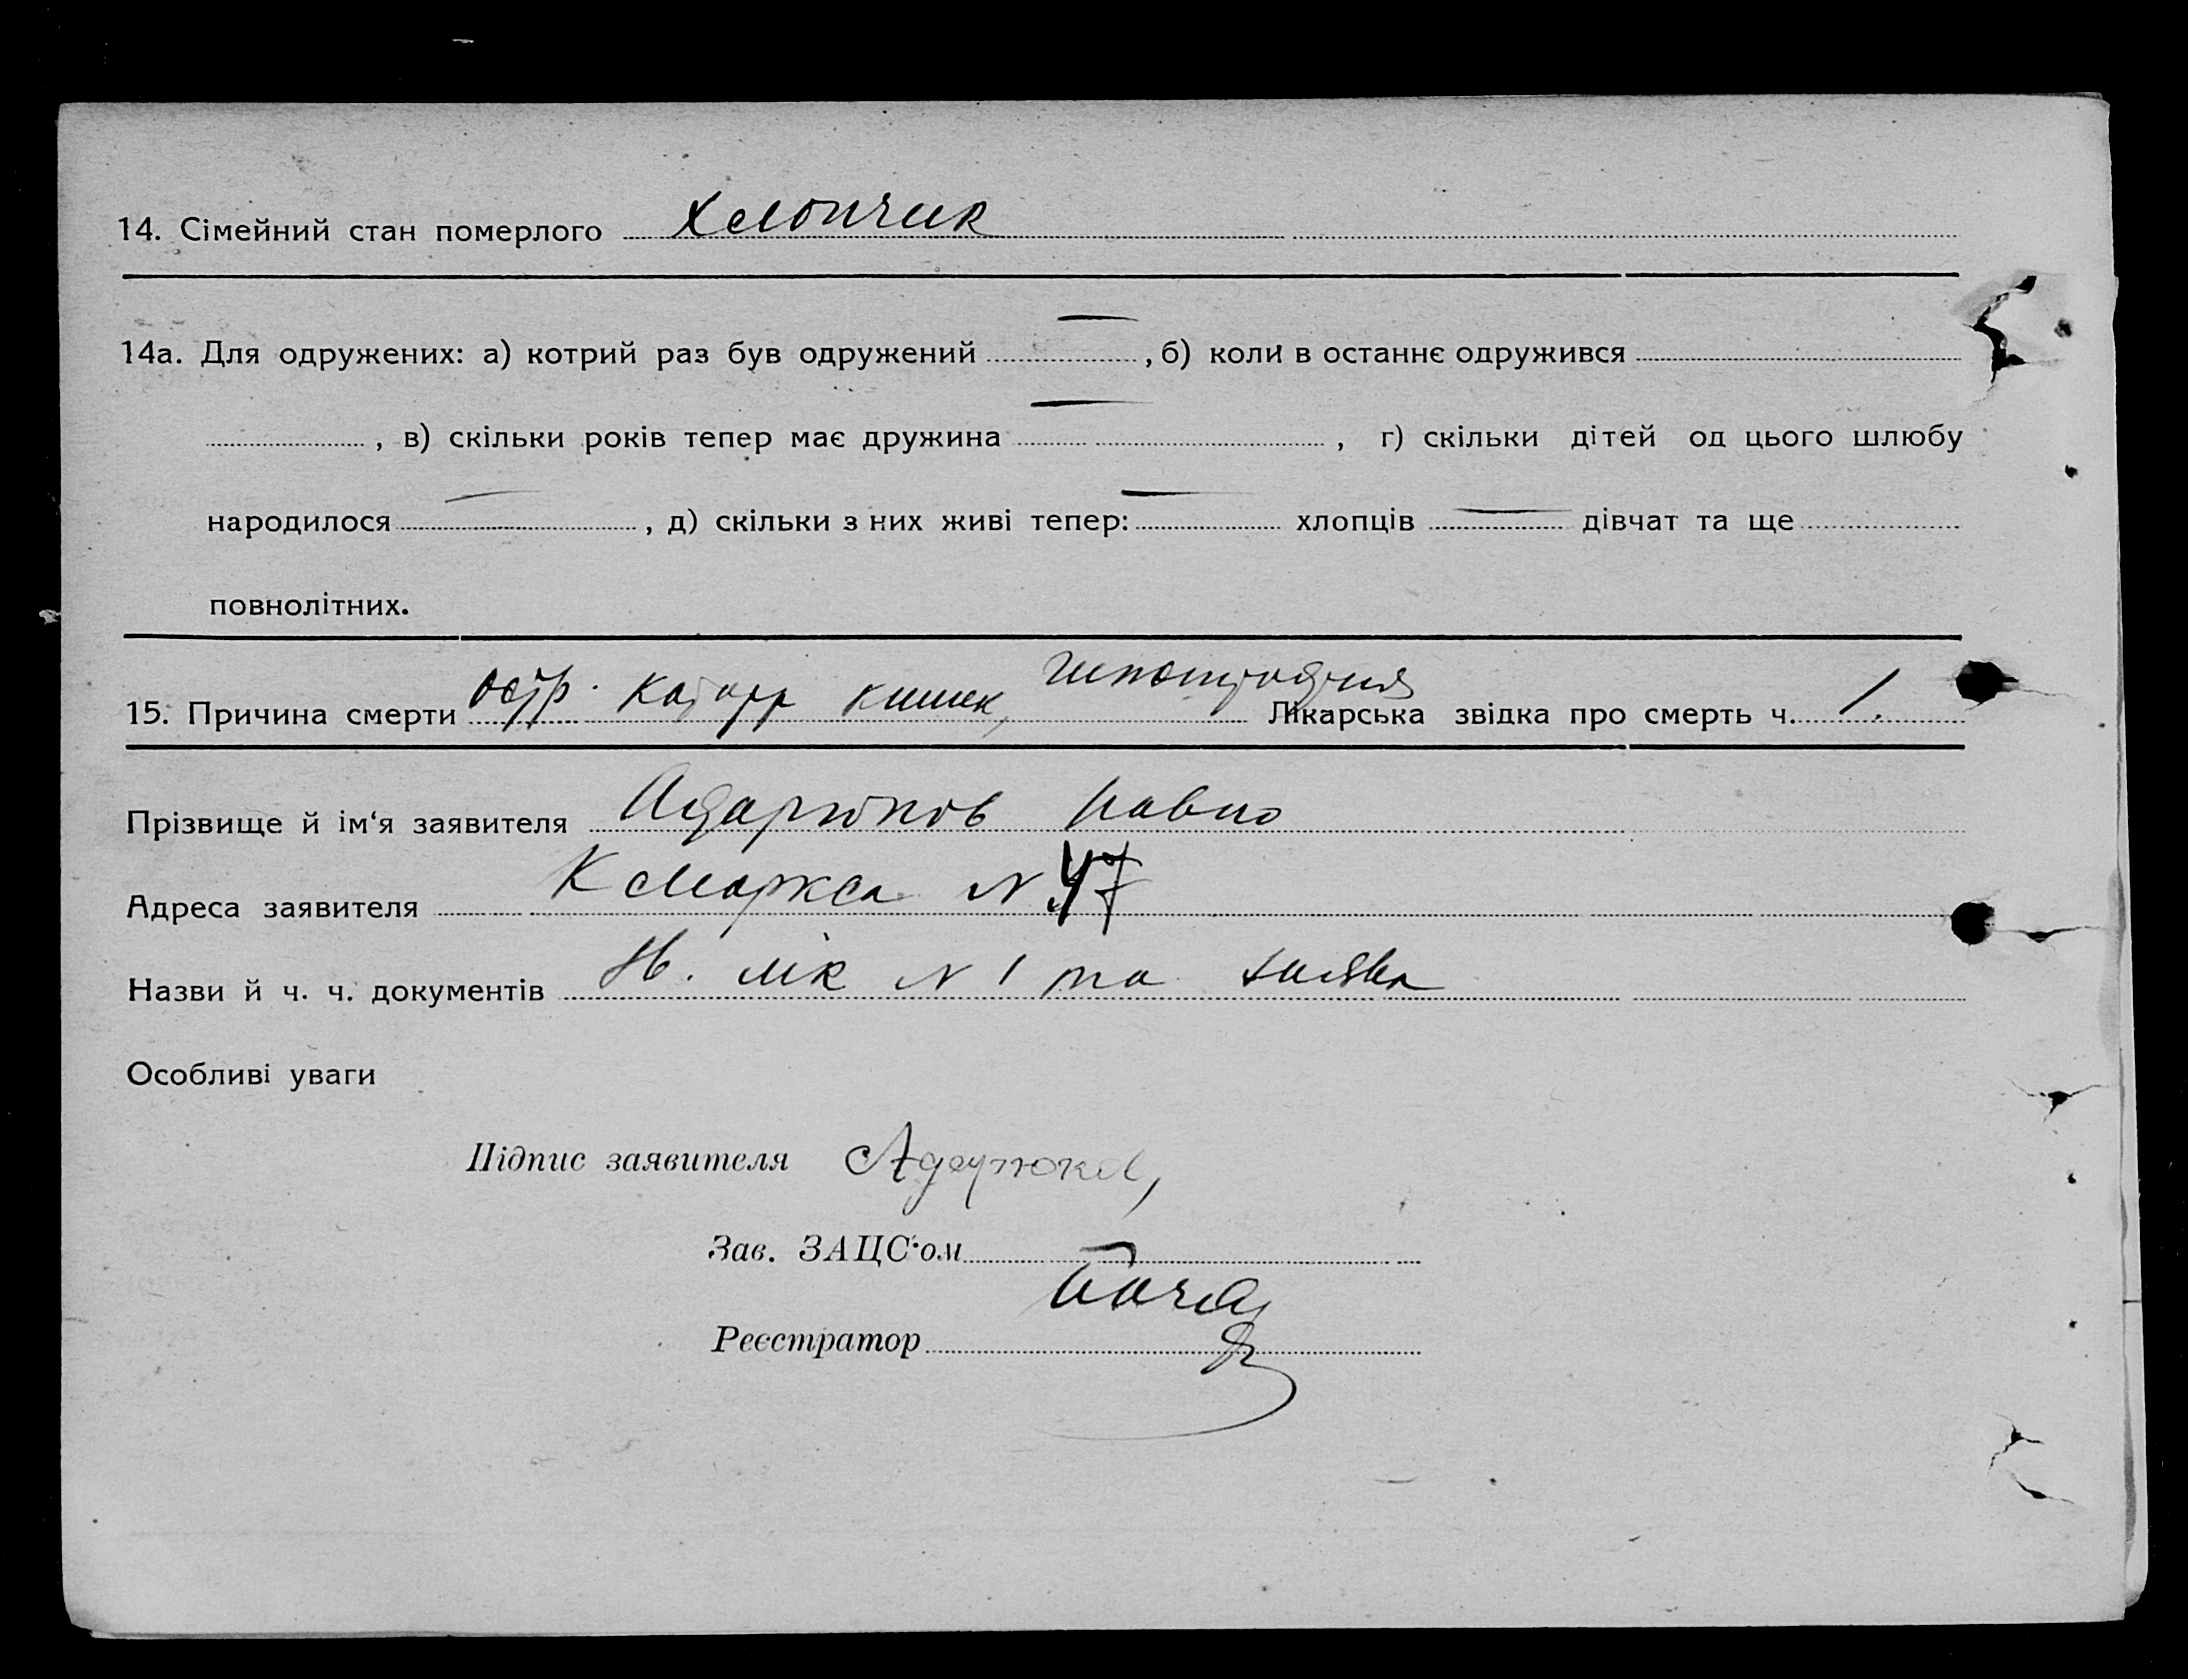 14. Сімейний стан померлого хлопчик
14а. Для одружених: а) котрий раз був одружений — , б) коли в останнє одружився
, в) скільки років тепер має дружина — , г) скільки дітей од цього шлюбу
народилося — , д) скільки з них живі тепер: — хлопців — дівчат та ще
повнолітних.
15. Причина смерти остр. катарр кишек, гипотрофия Лікарська звідка про смерть ч. 1.
Прізвище й ім‘я заявителя Адарюков Павло
Адреса заявителя К Маркса N 47
Назви й ч. ч. документів лік N 1 та заява
Особливі уваги
Підпис заявителя Адарюков,
Зав. ЗАЦС‘ом
Реєстратор